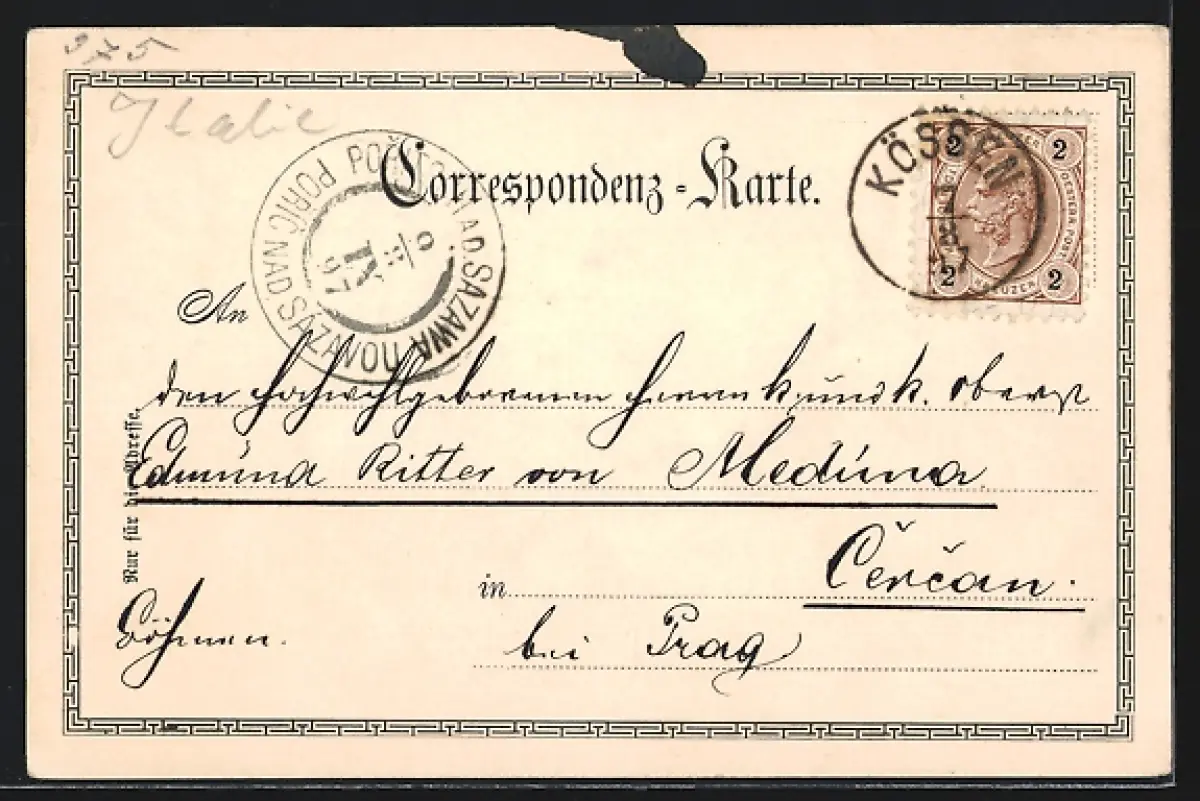 375
Italie
Correspondenz-Karte.
KÖSSEN
2 2
KREUZER
2 2
POŘÍČ NAD SÁZAVOU
NAD. SAZAWA
IX
97
An
den Hochwohlgeborenen Herrn k. und k. Oberst
Edmund Ritter von Meduna
in Čerčan.
bei Prag
Böhmen.
Nur für die Adresse.